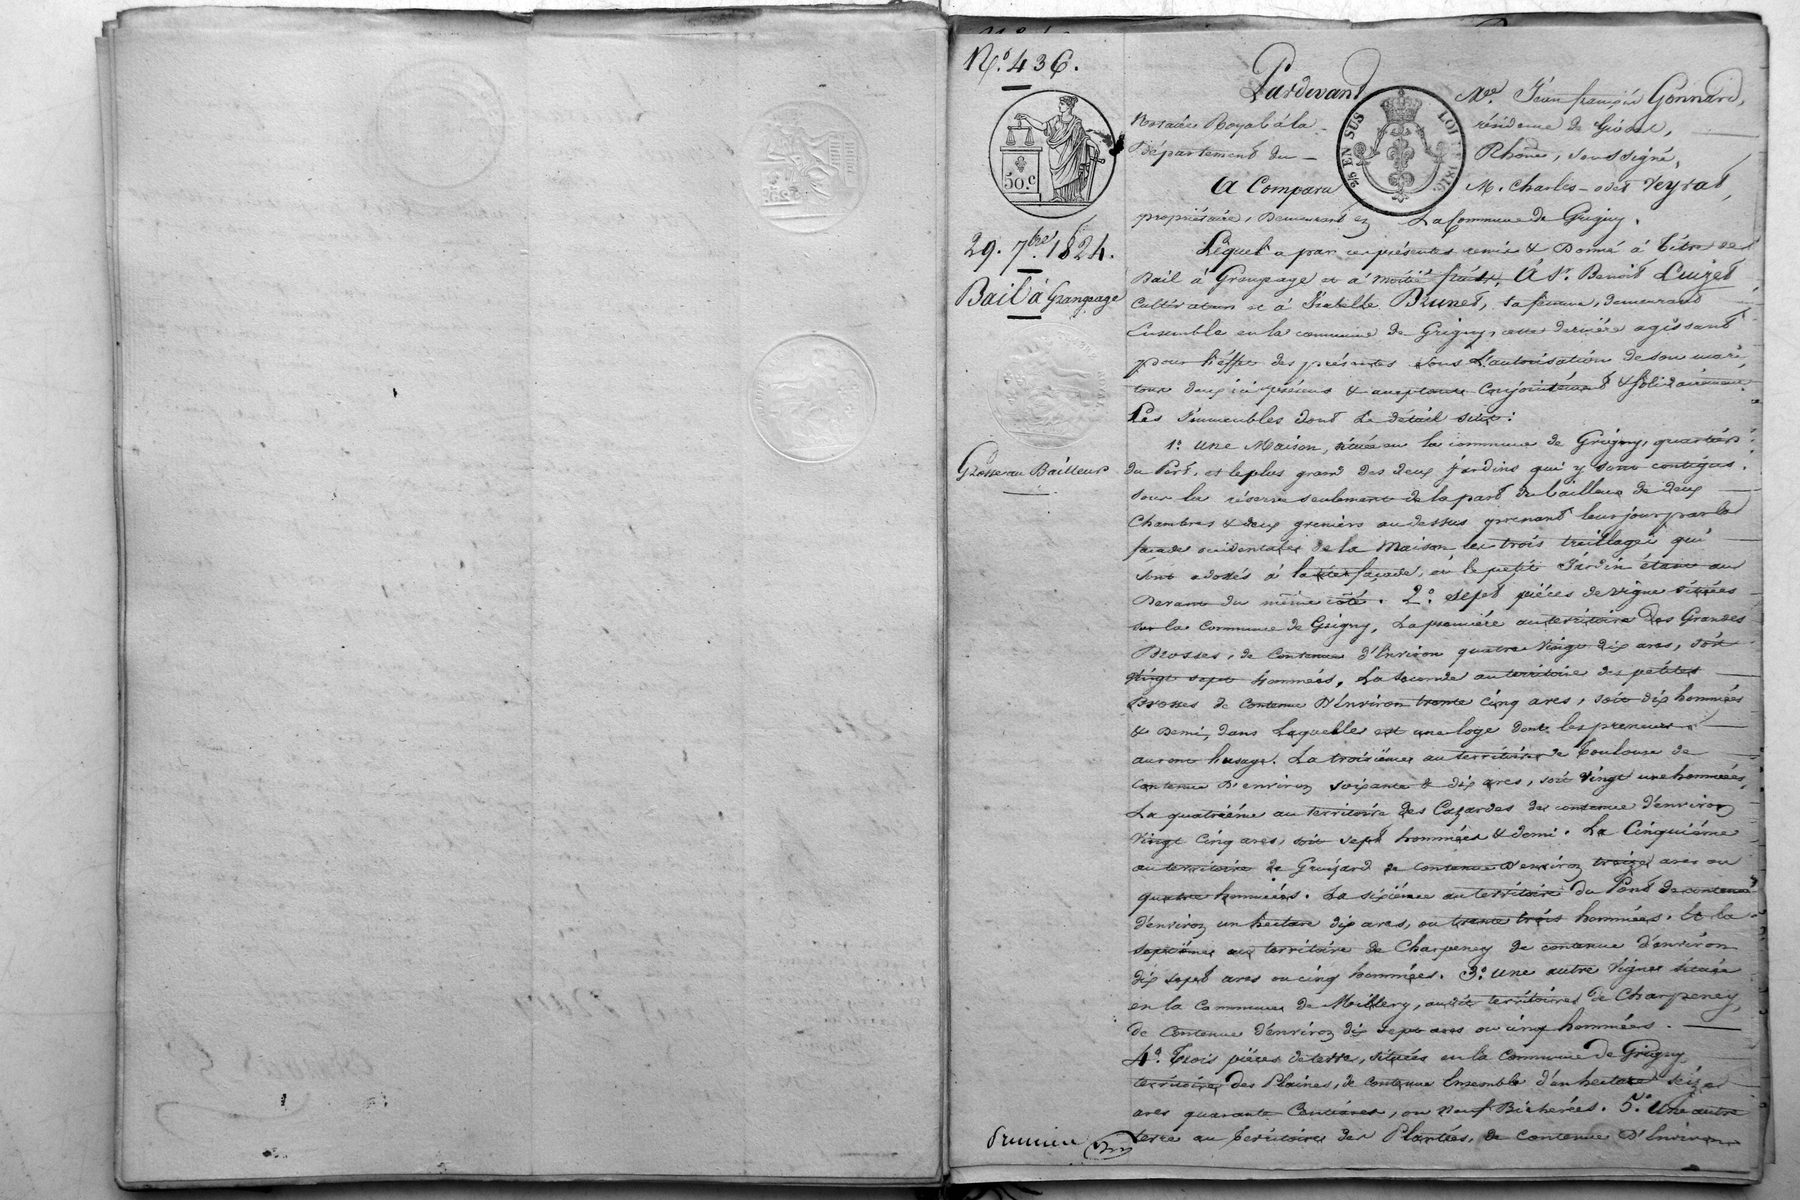 N.º 436.
50.c
29. 7bre 1824.
Bail à Grangeage
Grosse au Bailleur
2/5 EN SUS LOI DE 1816.
Pardevant Me. Jean françois Gonnard,
Notaire Royal à la résidence de Givors,
Département du Rhône, soussigné,
A Comparu M. Charles-odet Veyrat,
propriétaire, Demeurant en La Commune de Grigny.
Lequel a par ces présentes remis & Donné à titre de
Bail à Grangeage et à moitié fruits, À Sr. Benoit Luizet
Cultivateur et à Isabelle Brunet, sa femme, demeurant
Ensemble en la commune de Grigny, cette dernière agissant
pour l'effet des présentes sous L'autorisation de son mari
tous deux ici présens & acceptants Conjointement & solidairement.
Les Immeubles dont Le détail suit:
1.º Une Maison, située en la commune de Grigny, quartier
du Port, et le plus grand des deux Jardins qui y sont contigus.
sous la réserve seulement de la part du bailleur de deux
Chambres & deux greniers au dessus prenant leur jour par la
façade occidentale de la Maison les trois treillages qui
sont adossés à la façade, et le petit Jardin étant au
Devant du même côté. 2.º Sept pièces de vigne situées
sur la Commune de Grigny, La première au territoire des Grandes
Brosses, de Contenue d'Environ quatre Vingt dix ares, soit
Vingt sept hommées, La Seconde au territoire des petites
Brosses de Contenue D'Environ trente cinq ares, soit dix hommées
& Demi, dans Laquelle est une loge dont les preneurs
auront l'usage. La troisième au territoire de Toulouse de
Contenue D'environ soixante & dix ares, soit Vingt une hommées,
La quatrième au territoire des de contenue d'environ
Vingt Cinq ares, soit sept hommées & demi. La Cinquième
au territoire de de contenue D'environ treize ares ou
quatre hommées. La sixième au territoire du Pont de contenue
d'environ un hectare dix ares, ou trente trois hommées. Et la
septième au territoire de Charpeney de contenue d'environ
dix sept ares ou cinq hommées. 3.º Une autre Vigne située
en la Commune de Millery, audit territoire de Charpeney,
de Contenue d'environ dix sept ares ou cinq hommées.
4.º Trois pièces de terre, situées en la Commune de Grigny
territoire des Plaines, de contenue Ensemble d'un hectare seize
ares quarante Centiares, ou neuf Bicherées. 5.º Une autre
terre au territoire des Plantées, de contenue D'Environ